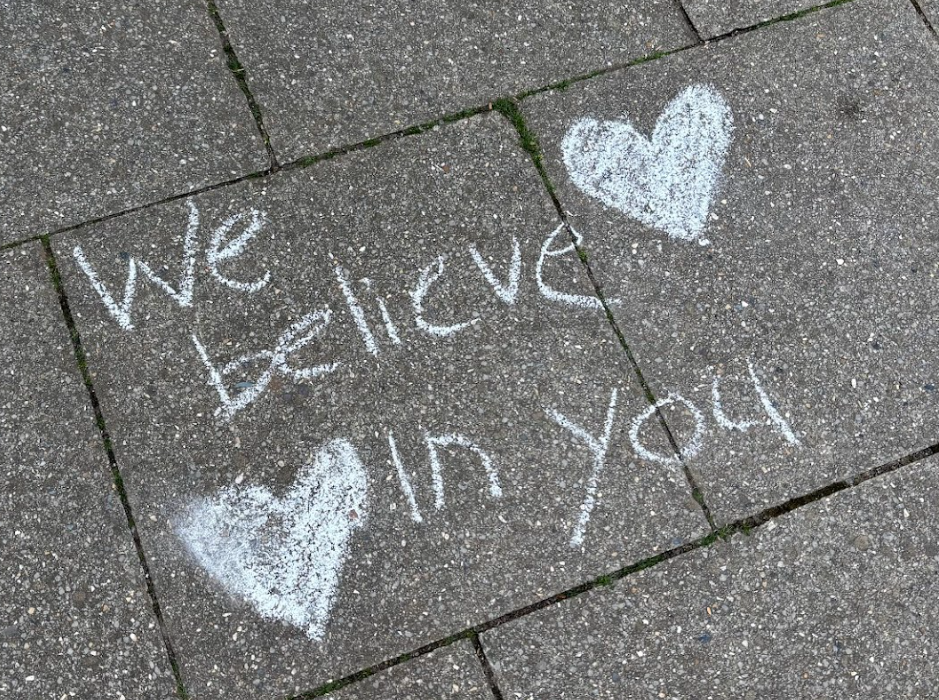 We
believe
in you